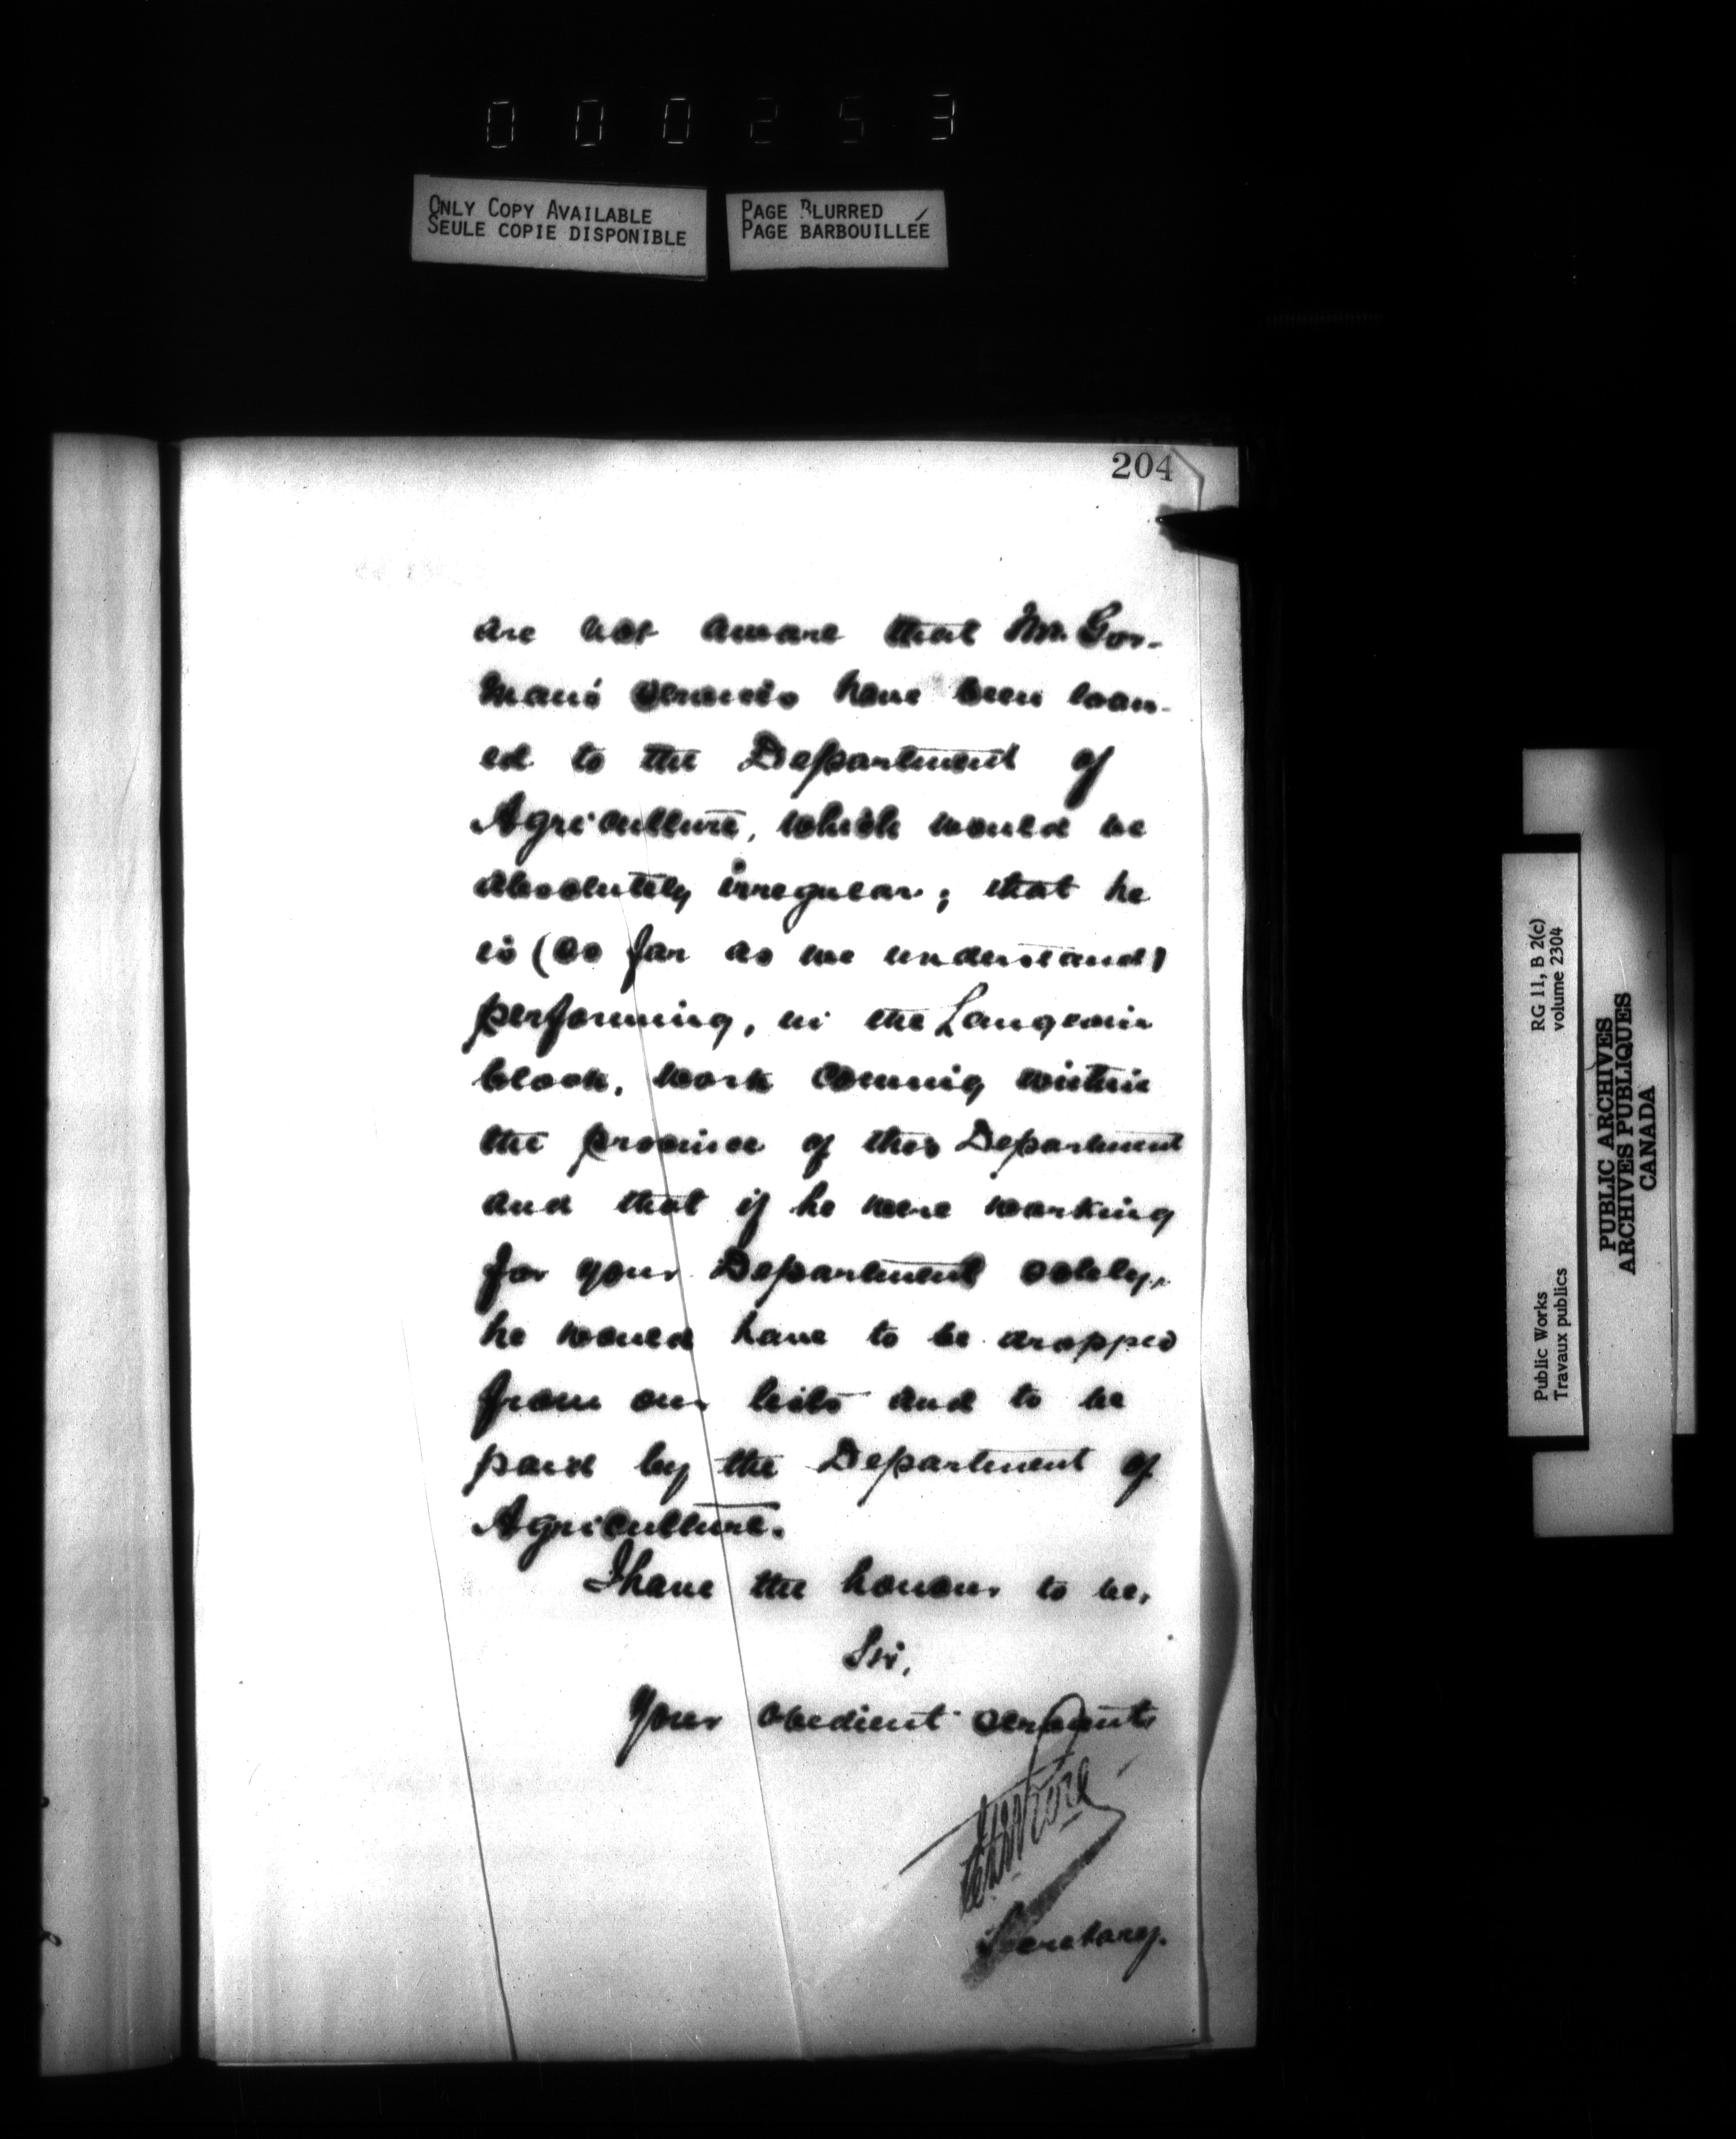 000253
ONLY COPY AVAILABLE
SEULE COPIE DISPONIBLE
PAGE BLURRED
PAGE BARBOUILLÉE
204
are not aware that Mr. Gor-
man's services have been loan-
ed to the Department of
Agriculture, which would be
absolutely irregular; that he
is (so far as we understand)
performing, in the Langevin
block, work coming within
the province of this Department
and that if he were working
for your Department solely,
he would have to be dropped
from our lists and to be
paid by the Department of
Agriculture.
I have the honour to be,
Sir,
Your obedient servant
Secretary.
RG 11, B 2(c)
volume 2304
Public Works
Travaux publics
PUBLIC ARCHIVES
ARCHIVES PUBLIQUES
CANADA